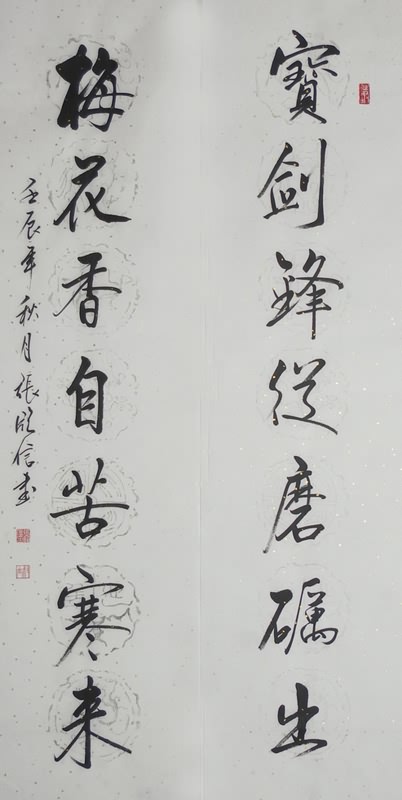 寶劍鋒從磨礪出
梅花香自苦寒来
壬辰年秋月張信書